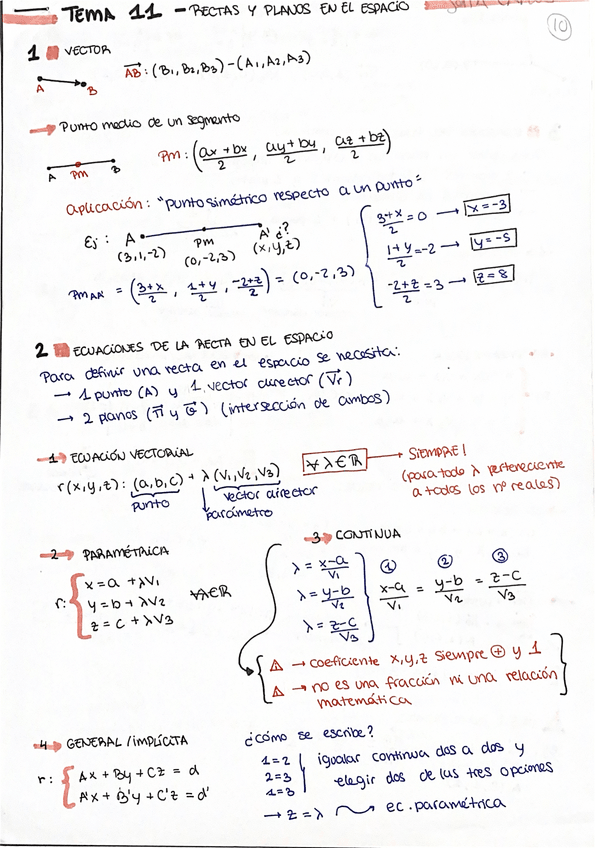 TEMA 11 - RECTAS Y PLANOS EN EL ESPACIO
10
1 VECTOR
A B
AB⃗ : (B1, B2, B3) - (A1, A2, A3)
→ Punto medio de un segmento
A PM B
PM : (ax + bx / 2 , ay + by / 2 , az + bz / 2)
aplicación: "punto simétrico respecto a un punto"
Ej : A PM A' ¿?
(3,1,-2) (0,-2,3) (x,y,z)
PM AA' = (3+x / 2 , 1+y / 2 , -2+z / 2) = (0,-2,3)
3+x / 2 = 0 → x = -3
1+y / 2 = -2 → y = -5
-2+z / 2 = 3 → z = 8
2 ECUACIONES DE LA RECTA EN EL ESPACIO
Para definir una recta en el espacio se necesita:
→ 1 punto (A) y 1 vector director (Vr⃗)
→ 2 planos (π y ) (intersección de ambos)
1 → ECUACIÓN VECTORIAL
r (x,y,z) : (a,b,c) + λ (V1, V2, V3)
punto
vector director
parámetro
∀ λ ∈ ℝ → SIEMPRE!
(para todo λ perteneciente
a todos los nº reales)
2 → PARAMÉTRICA
r: { x = a + λV1
y = b + λV2
z = c + λV3
∀λ∈ℝ
3 → CONTINUA
λ = x-a / V1
λ = y-b / V2
λ = z-c / V3
① ② ③
x-a / V1 = y-b / V2 = z-c / V3
⚠ → coeficiente x,y,z siempre ⊕ y 1
⚠ → no es una fracción ni una relación
matemática
4 → GENERAL / IMPLÍCITA
r: { Ax + By + Cz = d
A'x + B'y + C'z = d'
¿cómo se escribe?
1=2
2=3
1=3
igualar continua dos a dos y
elegir dos de las tres opciones
→ z = λ ec. paramétrica